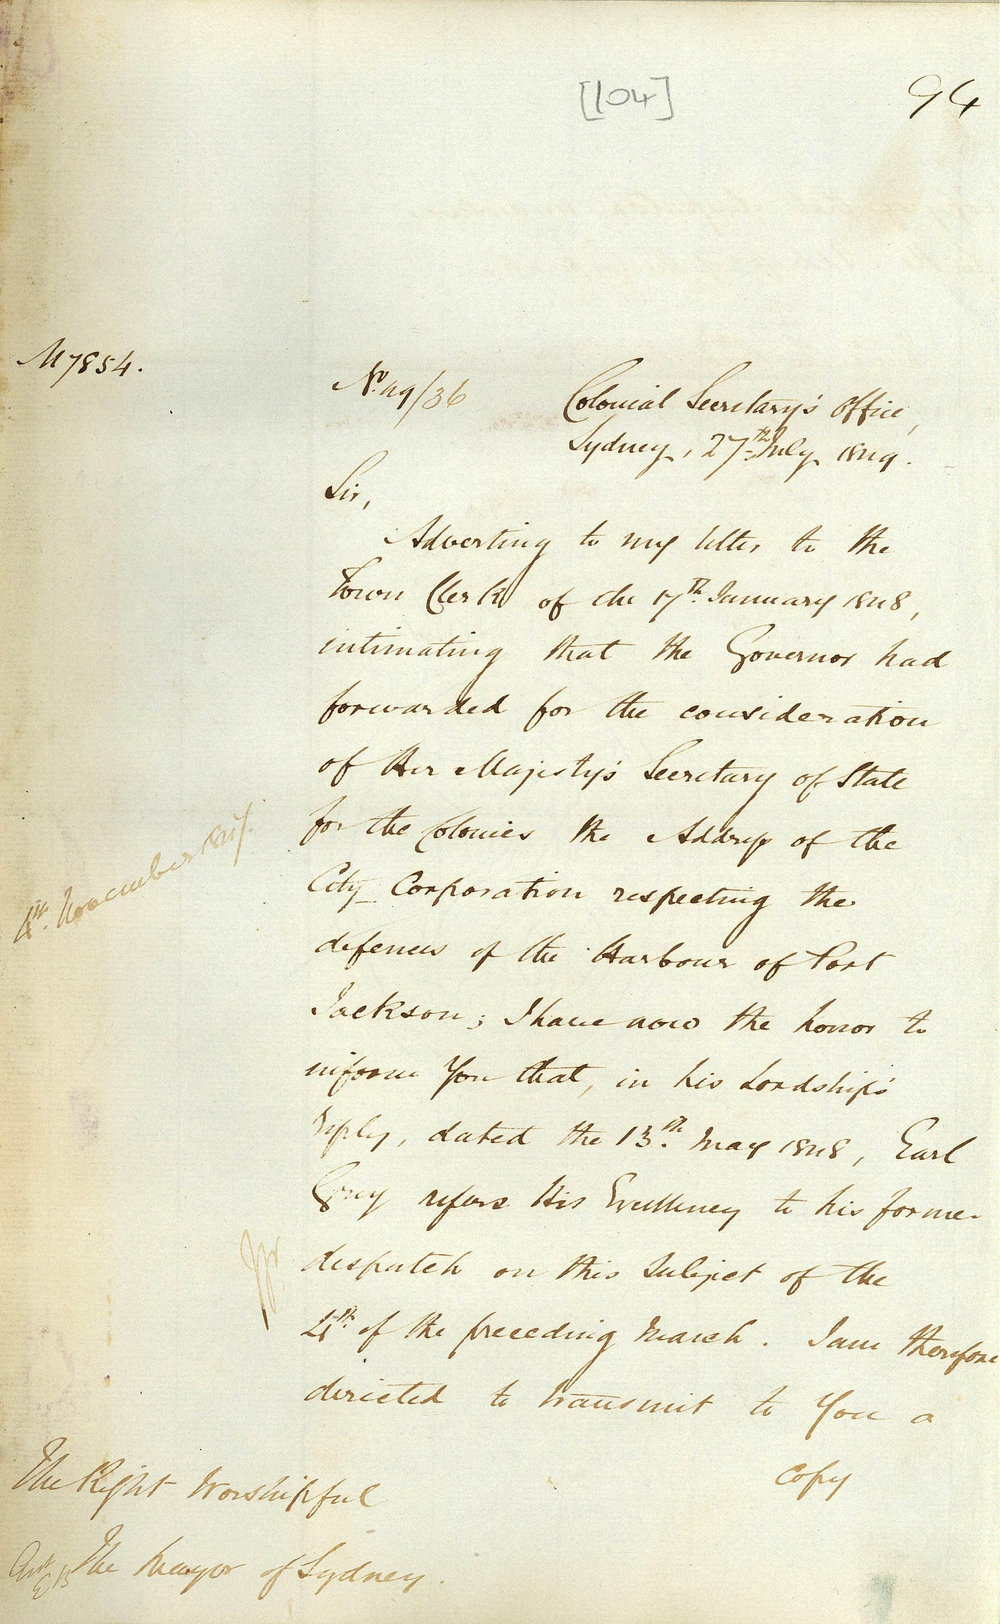 [104]
94
M7854.
No. 49/36
Colonial Secretary's Office,
Sydney, 27th July 1849.
Sir,
Adverting to my letter to the
Town Clerk of the 17th January 1848,
intimating that the Governor had
forwarded for the consideration
of Her Majesty's Secretary of State
for the Colonies the Address of the
City Corporation respecting the
4th November
defences of the Harbour of Port
Jackson; I have now the honor to
inform You that, in his Lordship's
reply, dated the 13th May 1848, Earl
Grey refers His Excellency to his former
despatch on this Subject of the
4th of the preceding March. I am therefore
directed to transmit to You a
copy
The Right Worshipful
The Mayor of Sydney.